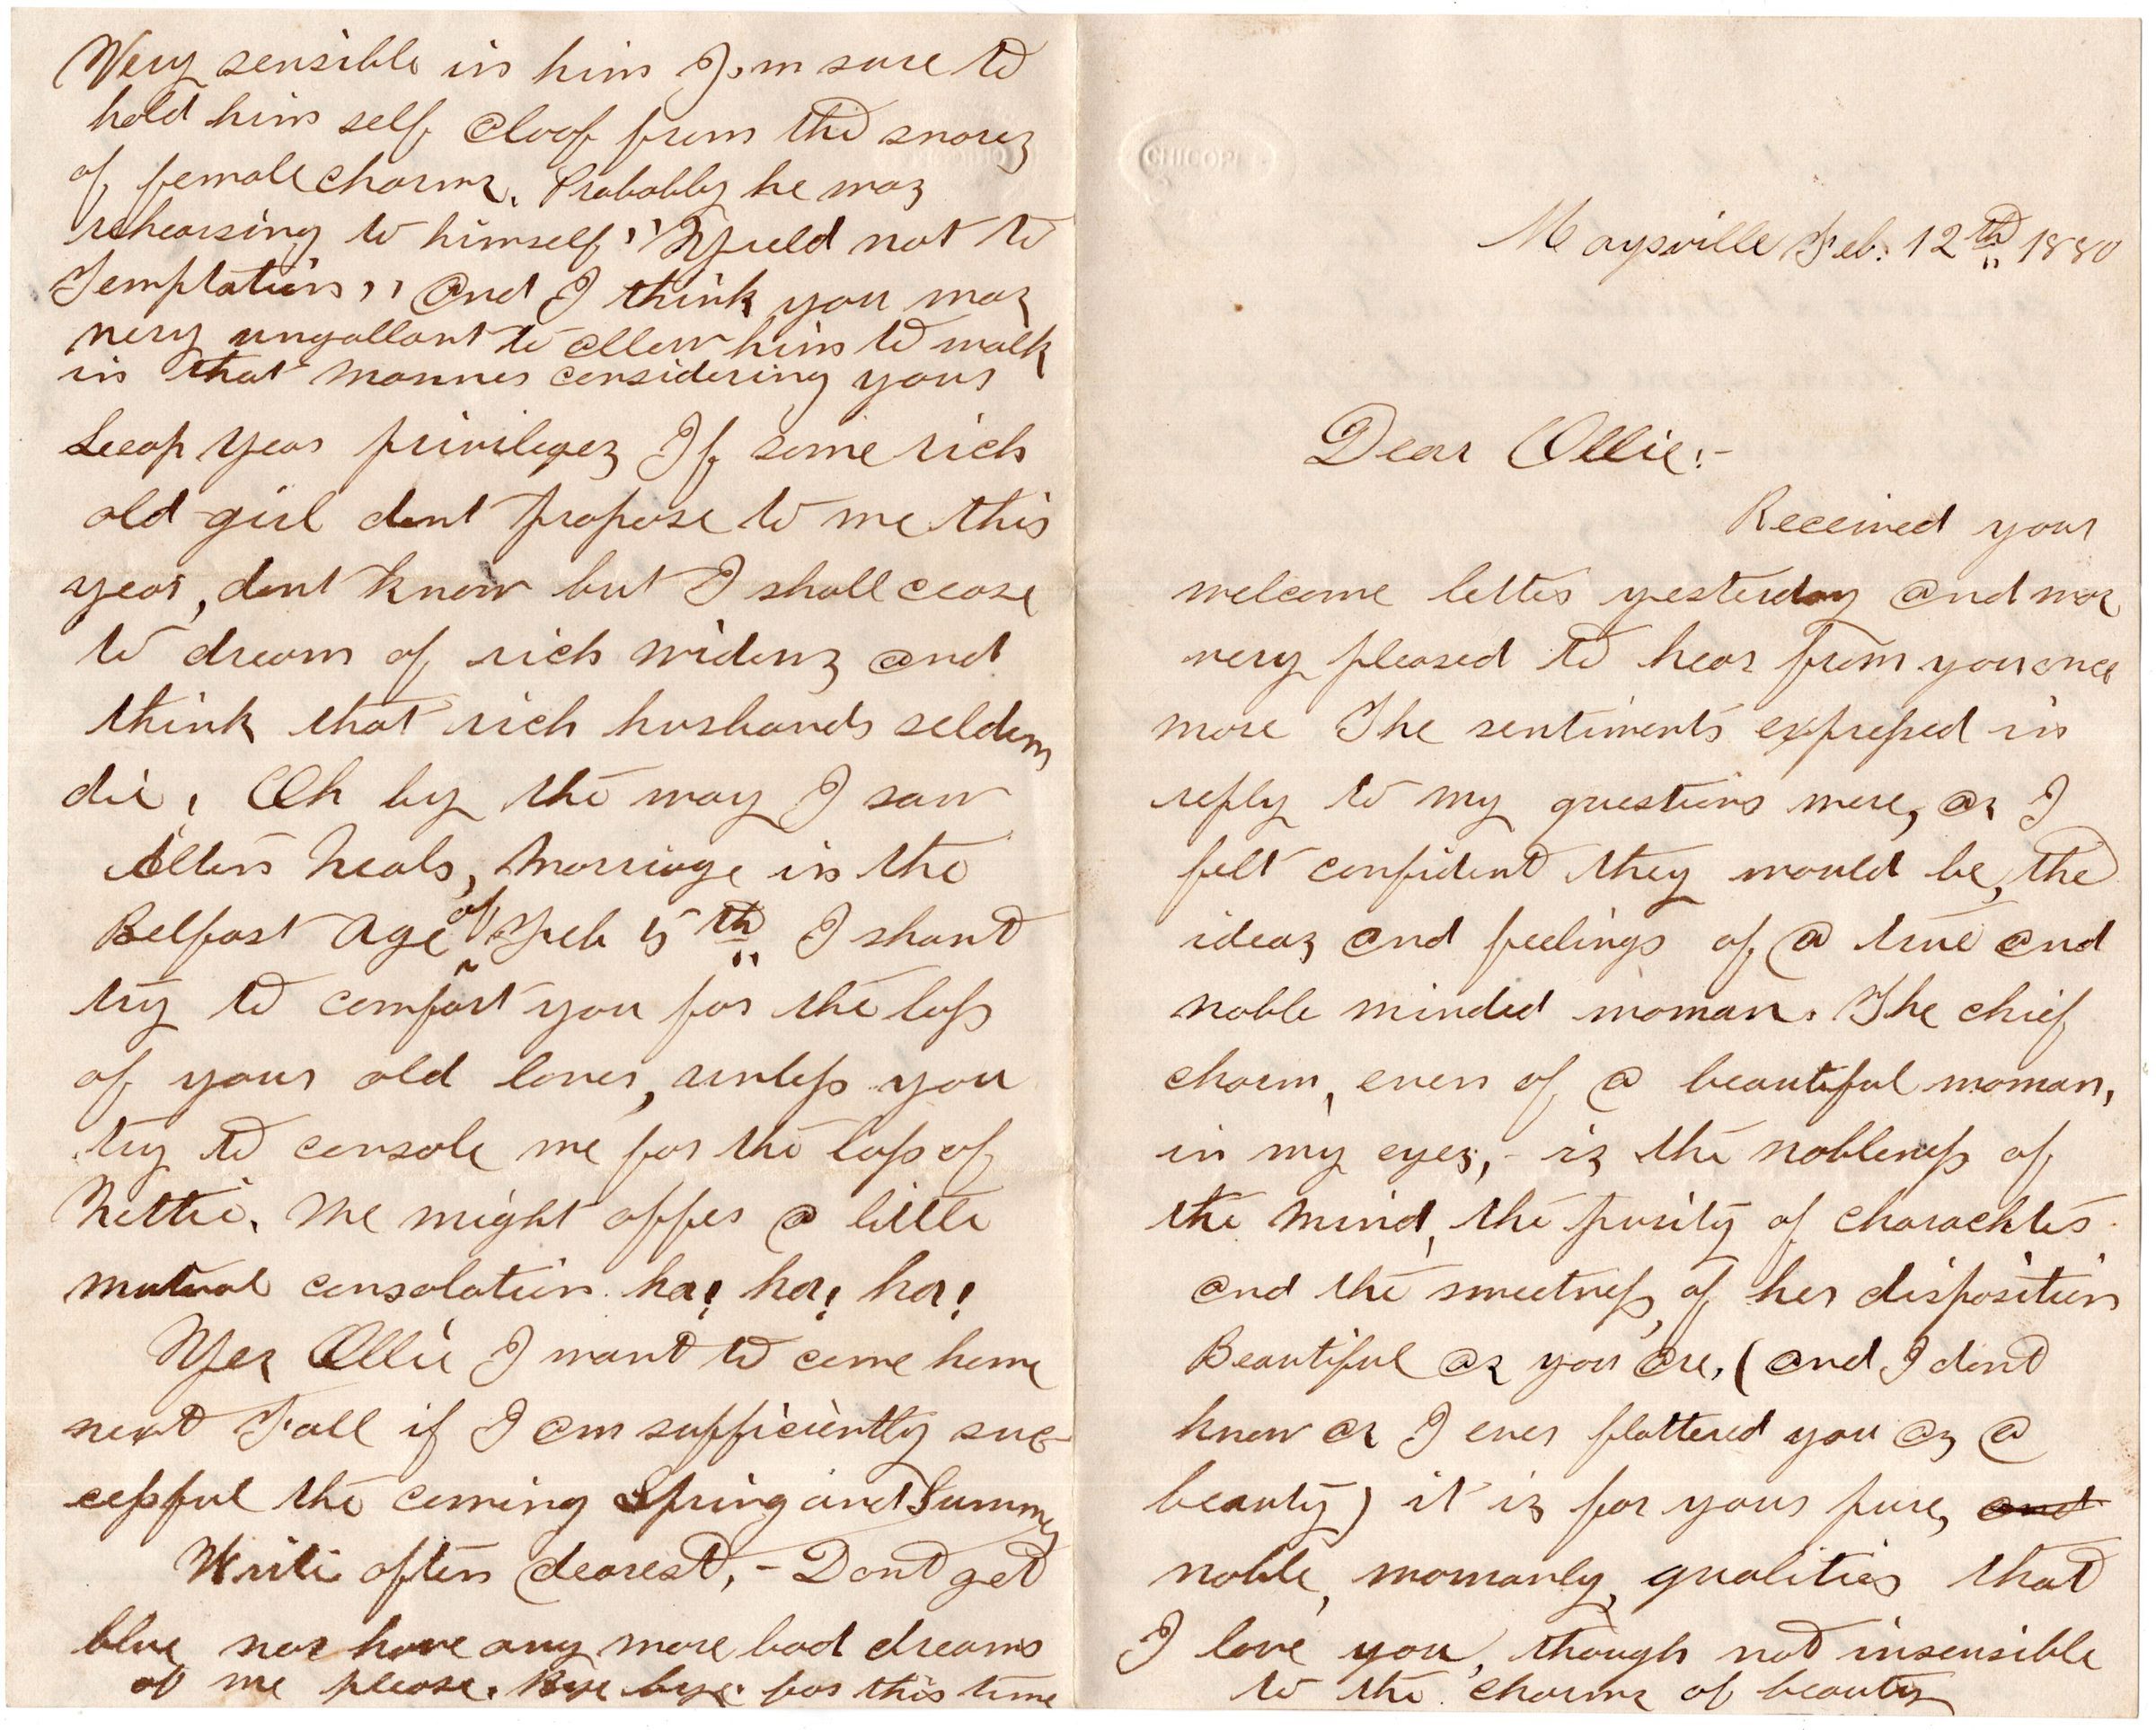 Very sensible in him I,m sure to
hold him self aloof from the snares
of female charms. Probably he was
rehearsing to himself, "Yield not to
Temptation,, and I think you was
very ungallant to allow him to walk
in that manner considering your
Leeap Year privileges If some rich
old girl dont propose to me this
year, dont know but I shall cease
to dream of rich widows and
think that rich husbands seldom
die. Oh by the way I saw
Alten Neals, Marriage in the
Belfast Age of Feb 5th I shant
try to comfort you for the loss
of your old lover, unless you
try to console me for the loss of
Nettie. We might offer a little
mutual consolation. ha! ha! ha!
Yes Ollie I want to come home
next Fall if I am sufficiently suc-
cessful the coming Spring and Summer
Write often dearest, - Dont get
blue nor have any more bad dreams
of me please. Bye bye for this time
CHICOPE
Maysville Feb. 12th 1880
Dear Ollie:-
Received your
welcome letter yesterday and was
very pleased to hear from you once
more The sentiments expressed in
reply to my questions were, as I
felt confident they would be, the
ideas and feelings of a true and
noble minded woman. The chief
charm, even of a beautiful woman,
in my eyes, - is the nobleness of
the mind, the purity of charachter
and the sweetness, of her disposition
Beautiful as you are, (and I dont
know as I ever flattered you as a
beauty) it is for your pure, and
noble, womanly, qualities that
I love you, though not insensible
to the charms of beauty